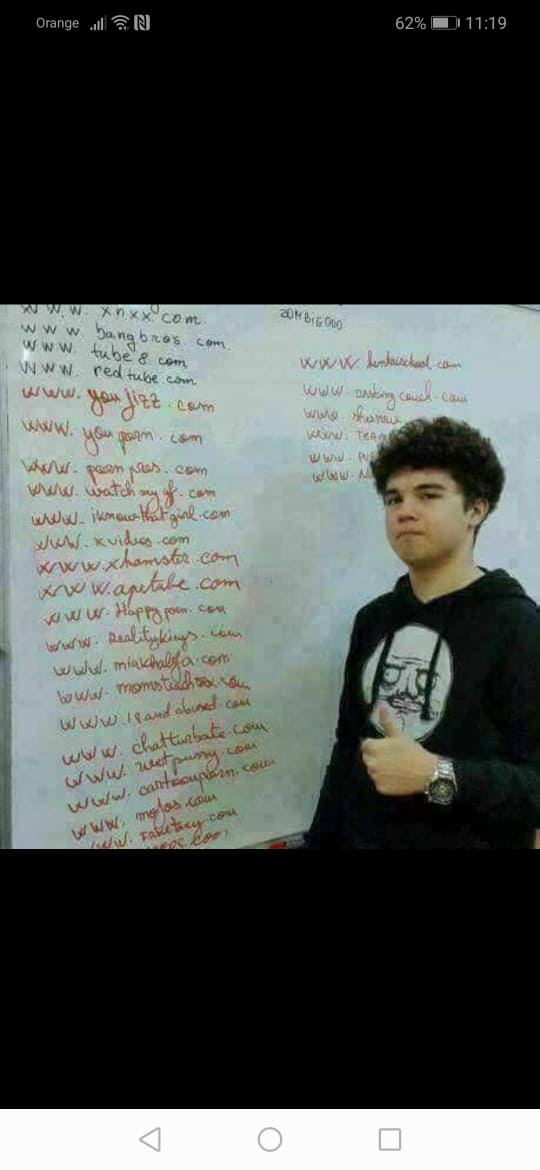 Orange 62% 11:19
www. xnxx.com
www. bangbros. com.
www. tube8. com
www. redtube.com
www. youjizz. com
www. youporn. com
www. pornpros. com
www. watchmygf. com
www. iknowthatgirl.com
www. xvideos.com
www.xhamster.com
www.apetube.com
www. Happyporn. com
www. Realitykings. com
www. miakhalifa.com
www. momsteachsex.com
www. 18andabused.com
www. chatturbate.com
www. wetpussy.com
www. cartoonporn.com
www. mofos.com
www. faketaxy.com
www. hentaischool.com
www.
www.
www.
www.
www.